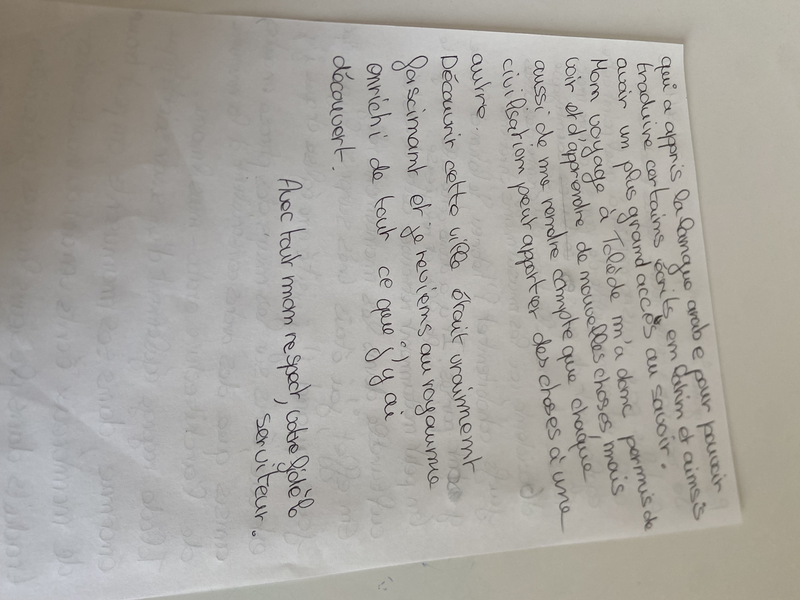 qui a appris la langue arabe pour pouvoir
traduire certains écrits en latin et ainsi
avoir un plus grand accès au savoir.
Mon voyage à Tolède m'a donc permis de
voir et d'apprendre de nouvelles choses, mais
aussi de me rendre compte que chaque
civilisation peut apporter des choses à une
autre.
Découvrir cette ville était vraiment
fascinant et je reviens au royaume
enrichi de tout ce que j'y ai
découvert.
Avec tout mon respect, votre fidèle
serviteur.